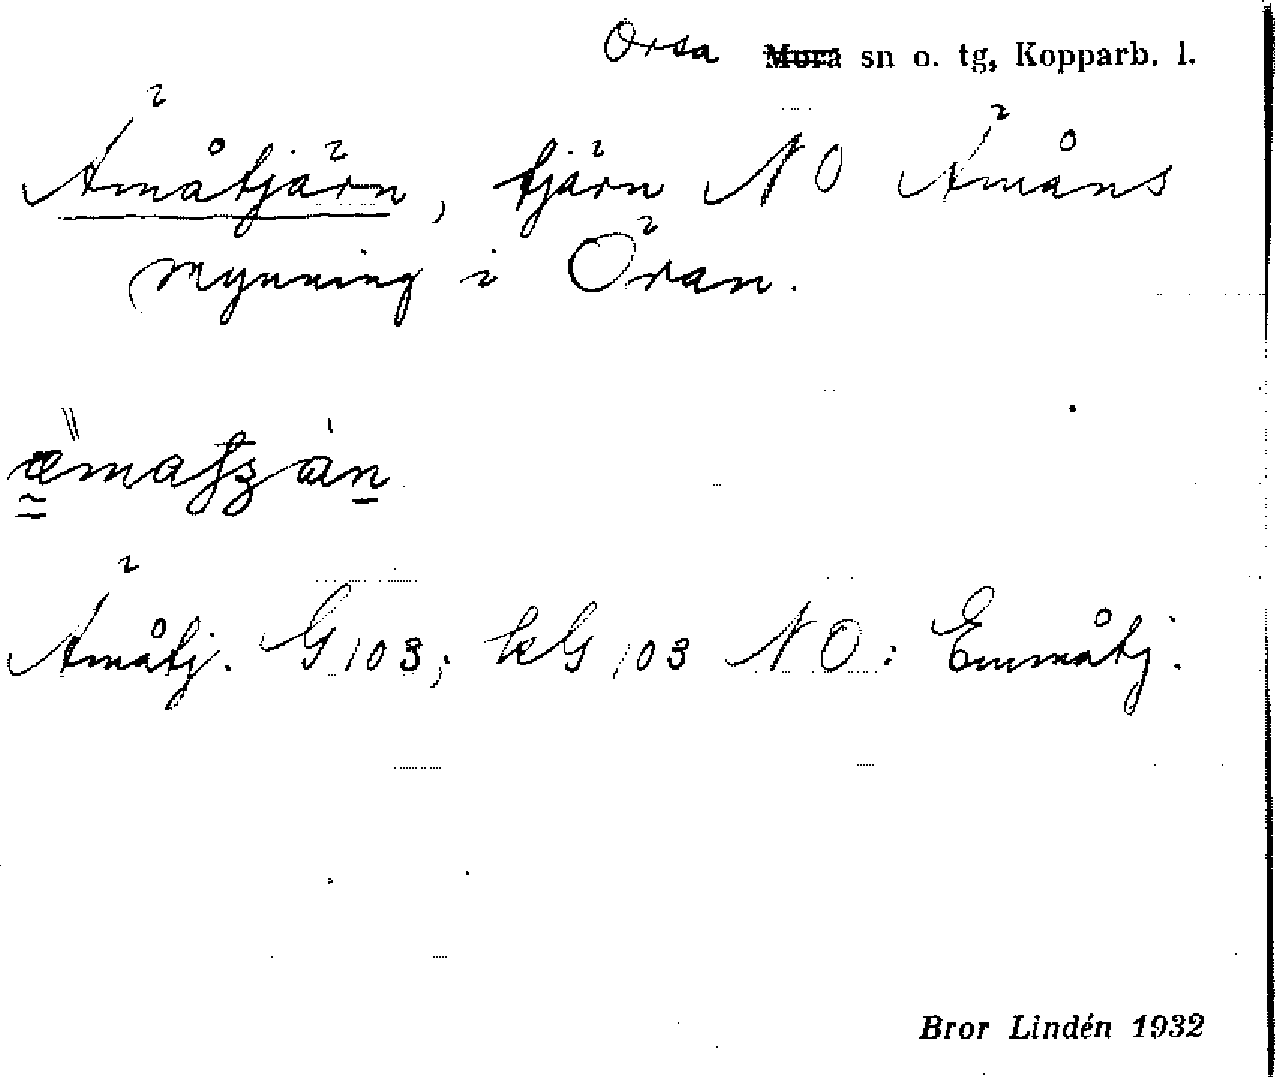 Orsa ~~Mora~~ sn o. tg, Kopparb. l.
Ämåtjärn, tjärn NO Ämåns
mynning i Öran.
Ämåtj. G 103; kG 103 NO: Emmåtj.
Bror Lindén 1932